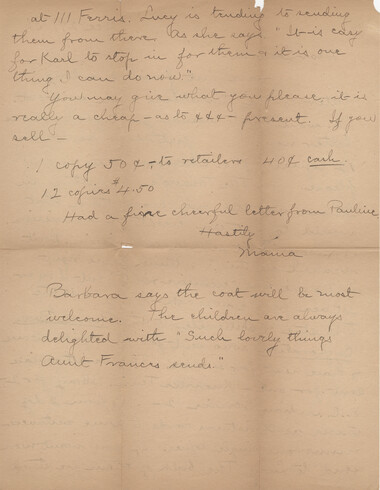 at 111 Ferris. Lucy is tending to sending
them from there. As she says "It is easy
for Karl to stop in for them & it is one
thing I can do now."
You may give what you please, it is
really a cheap - as to ¢¢¢ - present. If you
sell -
1 copy 50¢ - to retailers 40¢ cash.
12 copies $4.50
Had a fine cheerful letter from Pauline
Hastily
Mama
Barbara says the coat will be most
welcome. The children are always
delighted with "Such lovely things
Aunt Frances sends."